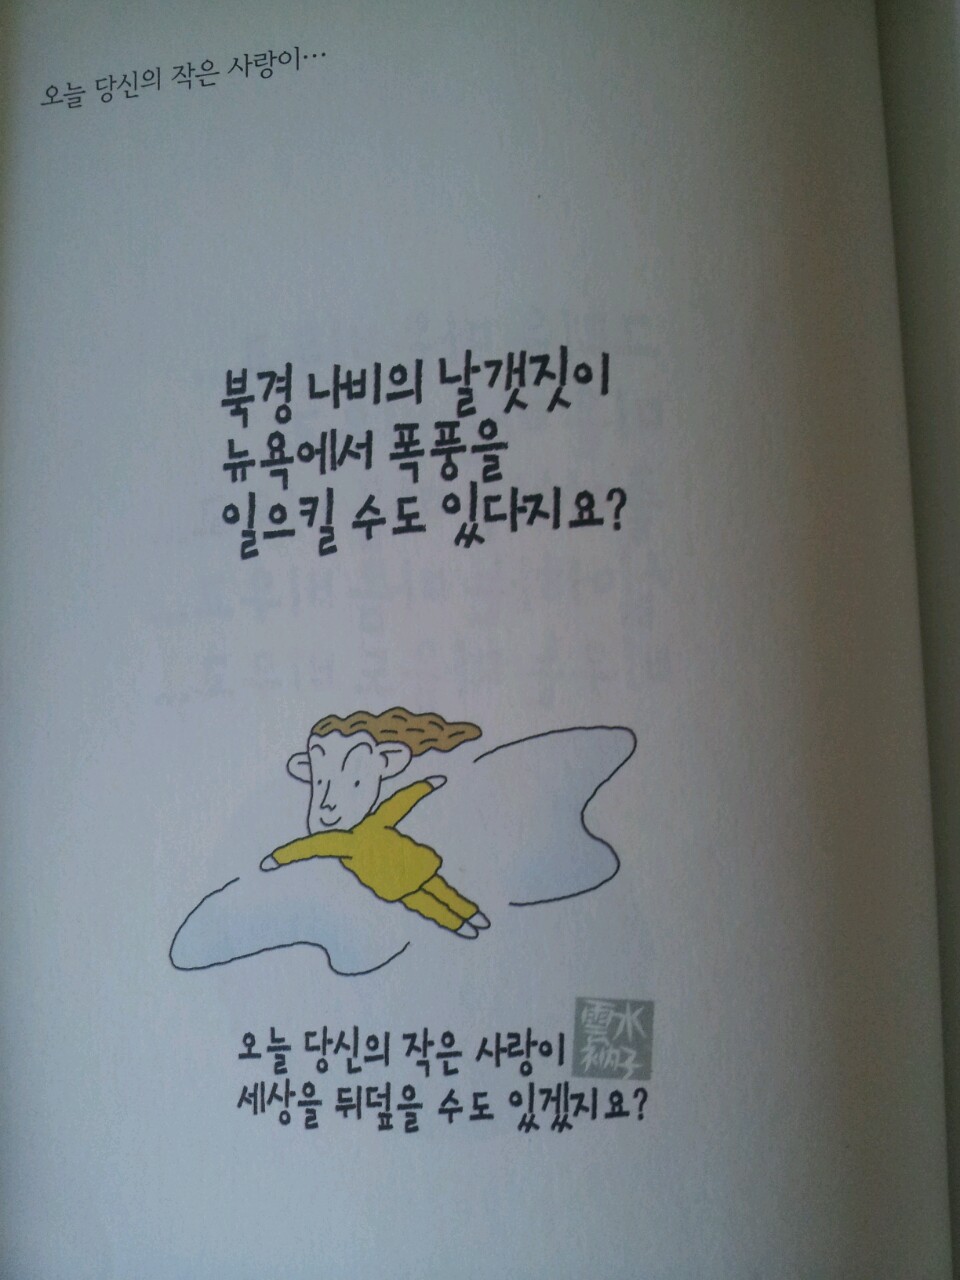 오늘 당신의 작은 사랑이…
북경 나비의 날갯짓이
뉴욕에서 폭풍을
일으킬 수도 있다지요?
오늘 당신의 작은 사랑이
세상을 뒤덮을 수도 있겠지요?
雲水